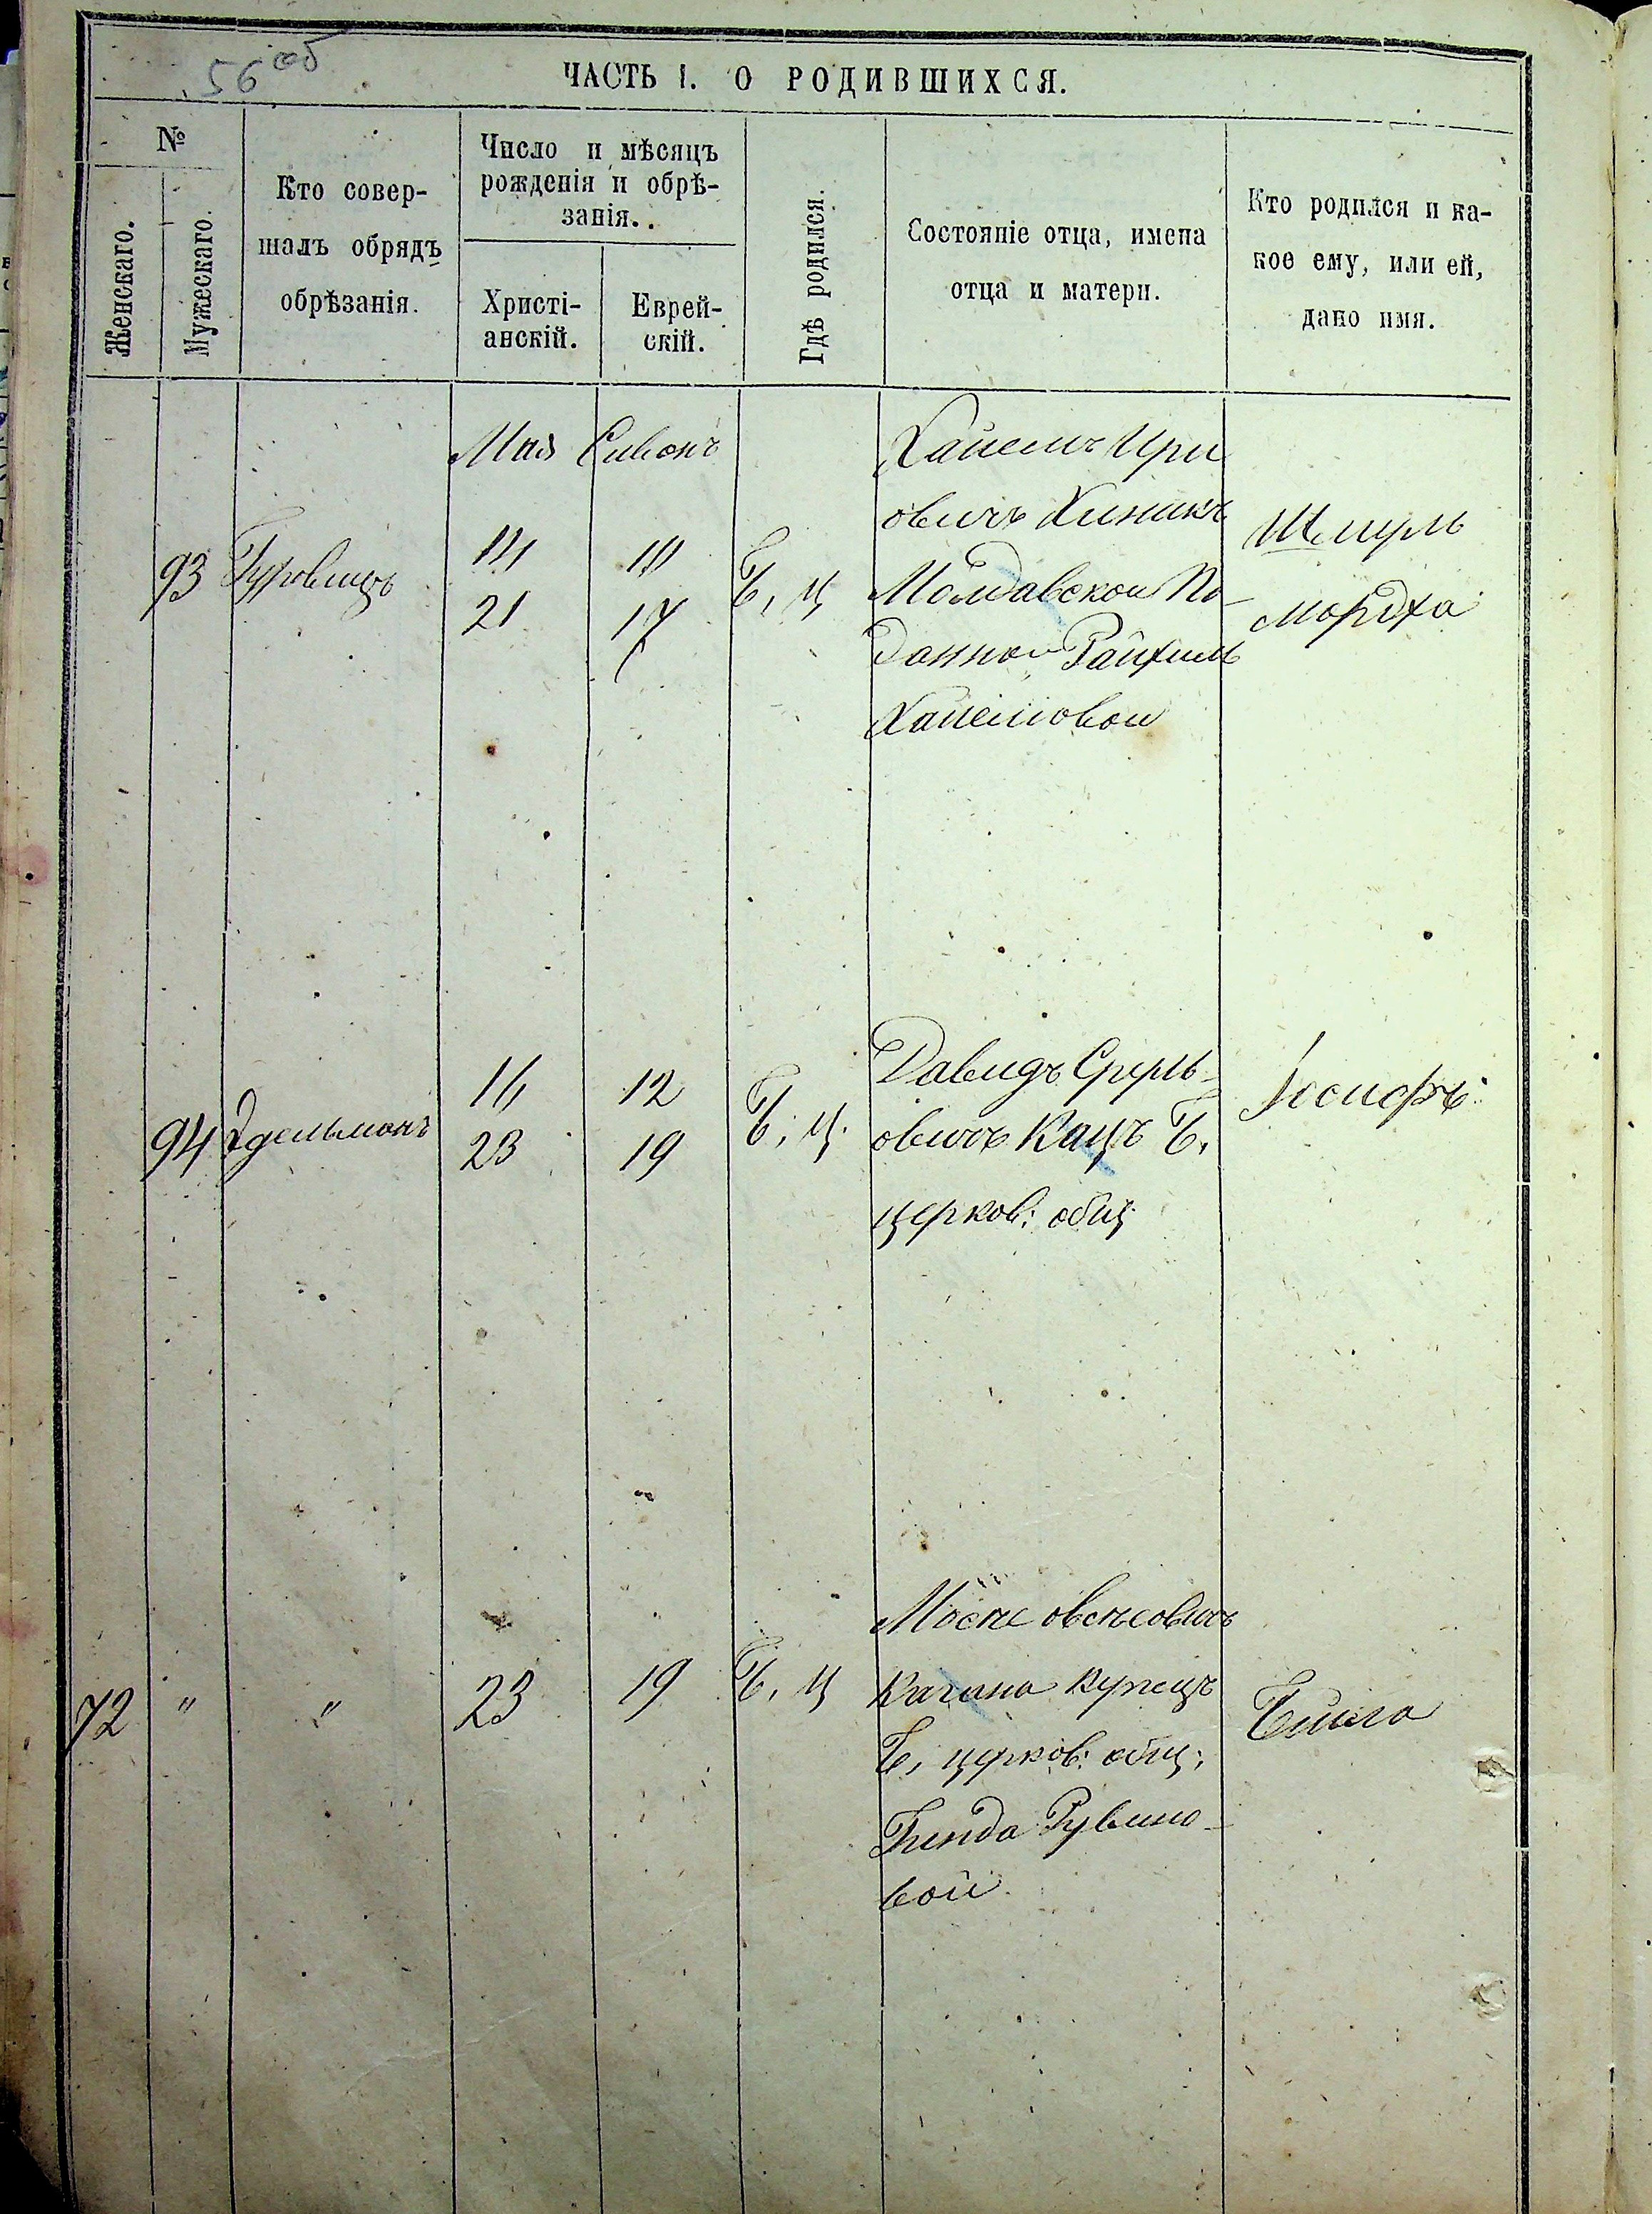 56 об
ЧАСТЬ I. О РОДИВШИХСЯ.
№
Женскаго.
Мужескаго.
Кто совер-
шалъ обрядъ
обрѣзанія.
Число и мѣсяцъ
рожденія и обрѣ-
занія.
Христі-
анскій.
Еврей-
скій.
Гдѣ родился.
Состояніе отца, имена
отца и матери.
Кто родился и ка-
кое ему, или ей,
дано имя.
Мая Сивонъ
93 Гуровицъ
14 10
21 17
Б, ц
Хаиемъ Ури
овичъ
Молдавской По-
данной Райхиль
Хаиемовои
Шмуль
Мордха
94 Эдельманъ
16 12
23 19
Б, ц.
Давидъ Сруль-
овичъ Кацъ Б.
церков: общ:
Іосифъ
72 " "
23 19
Б, ц
Мосне Овсеевичъ
Кагана Купецъ
Б, церков: общ:
Гинда Рувино-
вой
Бейла